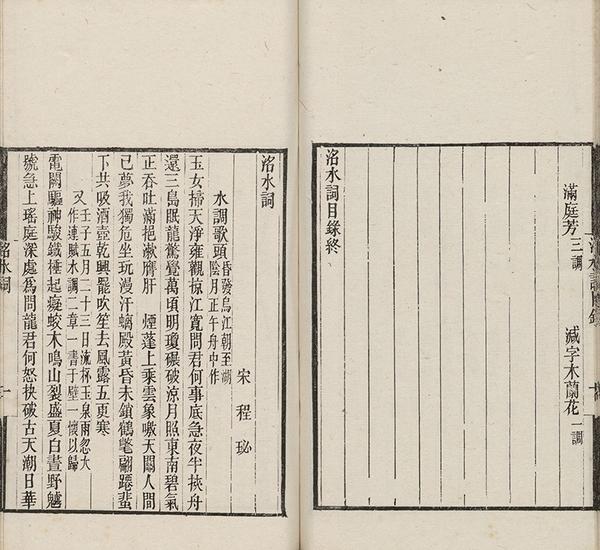 滿庭芳三調　減字木蘭花一調
洺水詞目錄終
洺水詞
宋　程珌
水調歌頭　昏發烏江朝至湖
陰月正午舟中作
玉女掃天淨雍觀掠江寬問君何事底急夜半挾舟
還三島眠龍驚覺萬頃明瓊碾破涼月照東南碧氣
正吞吐滿挹漱脾肝　煙蓬上乘雲象噭天關人間
已夢我獨危坐玩漫汗螭殿黃昏未鎖鶴氅翩躚蜚
下共吸酒壺乾興罷吹笙去風露五更寒
又　壬子五月二十三日流杯玉泉雨忽大
作連賦水調二章一書于壁一懷以歸
電闢驅神駿鐵捶起癡蛟木鳴山裂盛夏白晝野魑
號急上瑤庭深處為問龍君何怒抉破古天潮日華
洺水詞　一